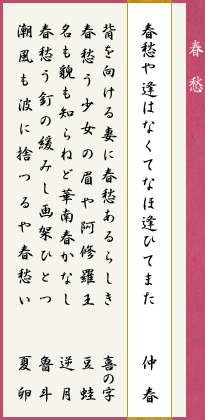 春愁
春愁や逢はなくてなほ逢ひてまた 仲春
背を向ける妻に春愁あるらしき 喜の字
春愁う少女の眉や阿修羅王 豆蛙
名も貌も知らねど華南春かなし 逆月
春愁う釘の緩みし画架ひとつ 魯斗
潮風も波に捨つるや春愁い 夏卵